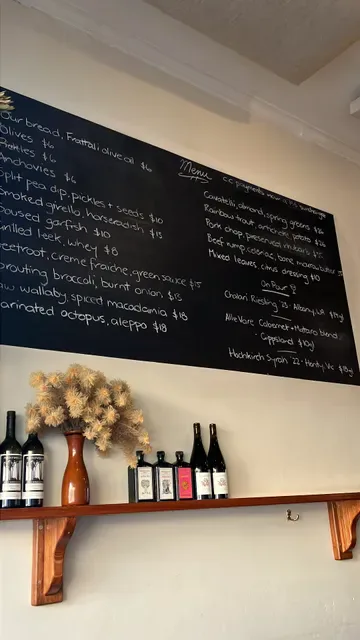 Our bread, Frattali olive oil $6
Olives $6
Pickles $6
Anchovies $6
Split pea dip, pickles + seeds $10
Smoked givello, horseradish $15
Soused garfish $10
Grilled leek, whey $8
Beetroot, creme fraiche, green sauce $15
Sprouting broccoli, burnt onion $15
Raw wallaby, spiced macadamia $18
Marinated octopus, aleppo $18
Menu
c.c payments
surcharge
Cavatelli, almond, spring greens
Rainbow trout, artichoke, potatoes $26
Pork chop, preserved rhubarb
Beef rump, cafe
bone marrow butter
Mixed leaves, citrus dressing $10
On Pour
Chalari Riesling '23 - Albany, WA
Alle Vare Cabernet + Mataro blend
- Gippsland
Hochkirch Syrah '22 - Henty, Vic